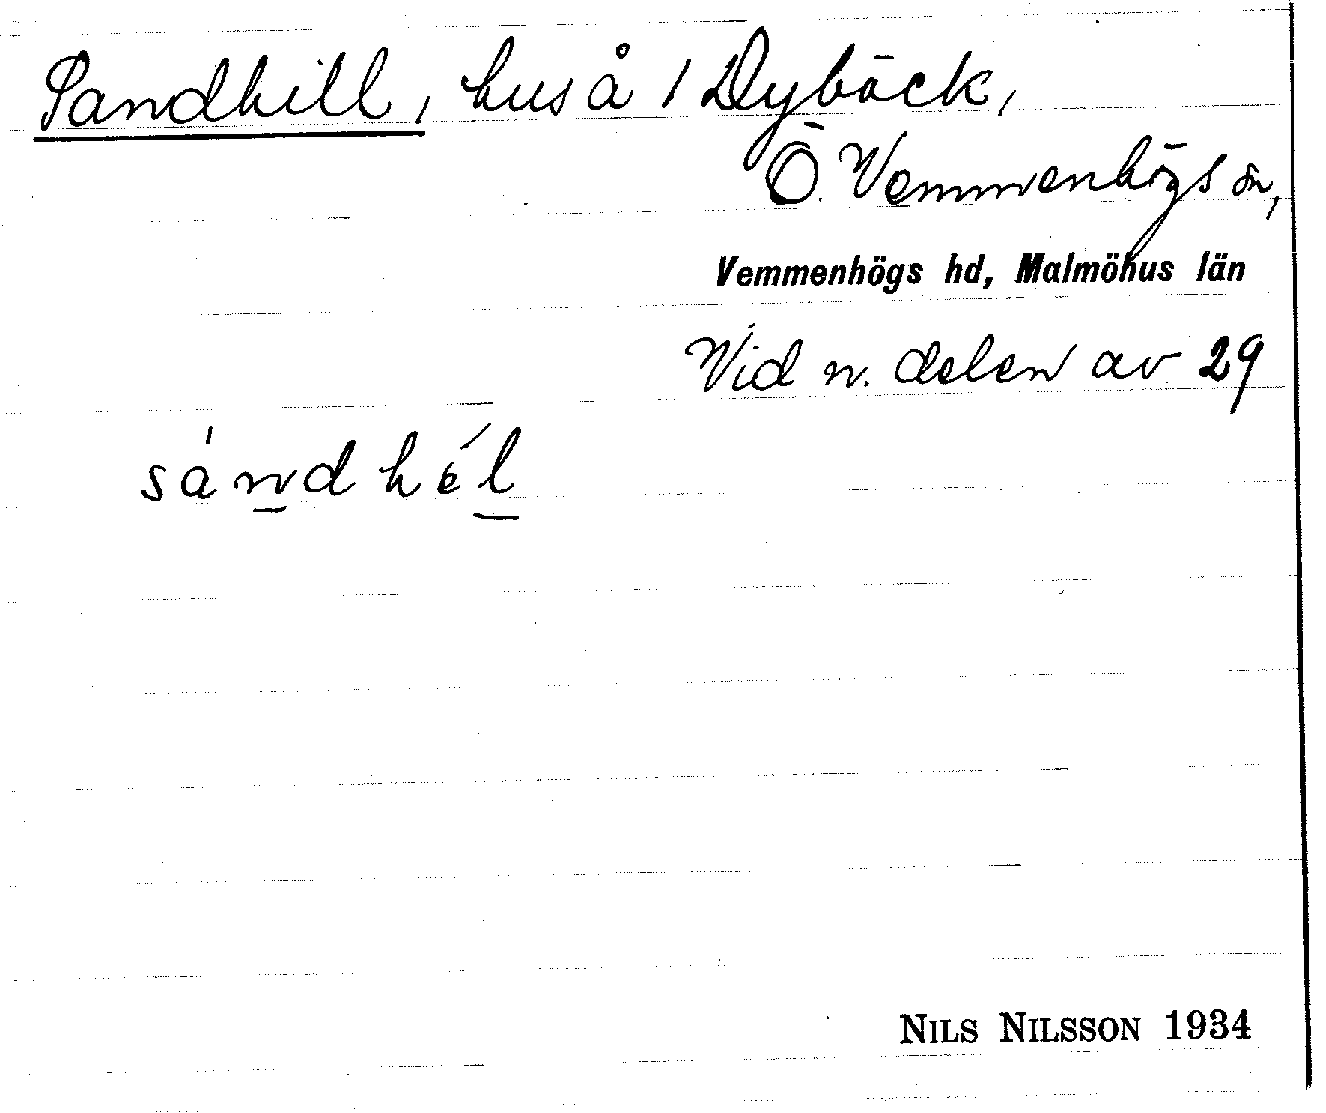 Sandhill, hus å 1 Dybäck,
Ö. Vemmenhögs sn,
Vemmenhögs hd, Malmöhus län
Vid n. delen av 29
sándhél
NILS NILSSON 1934